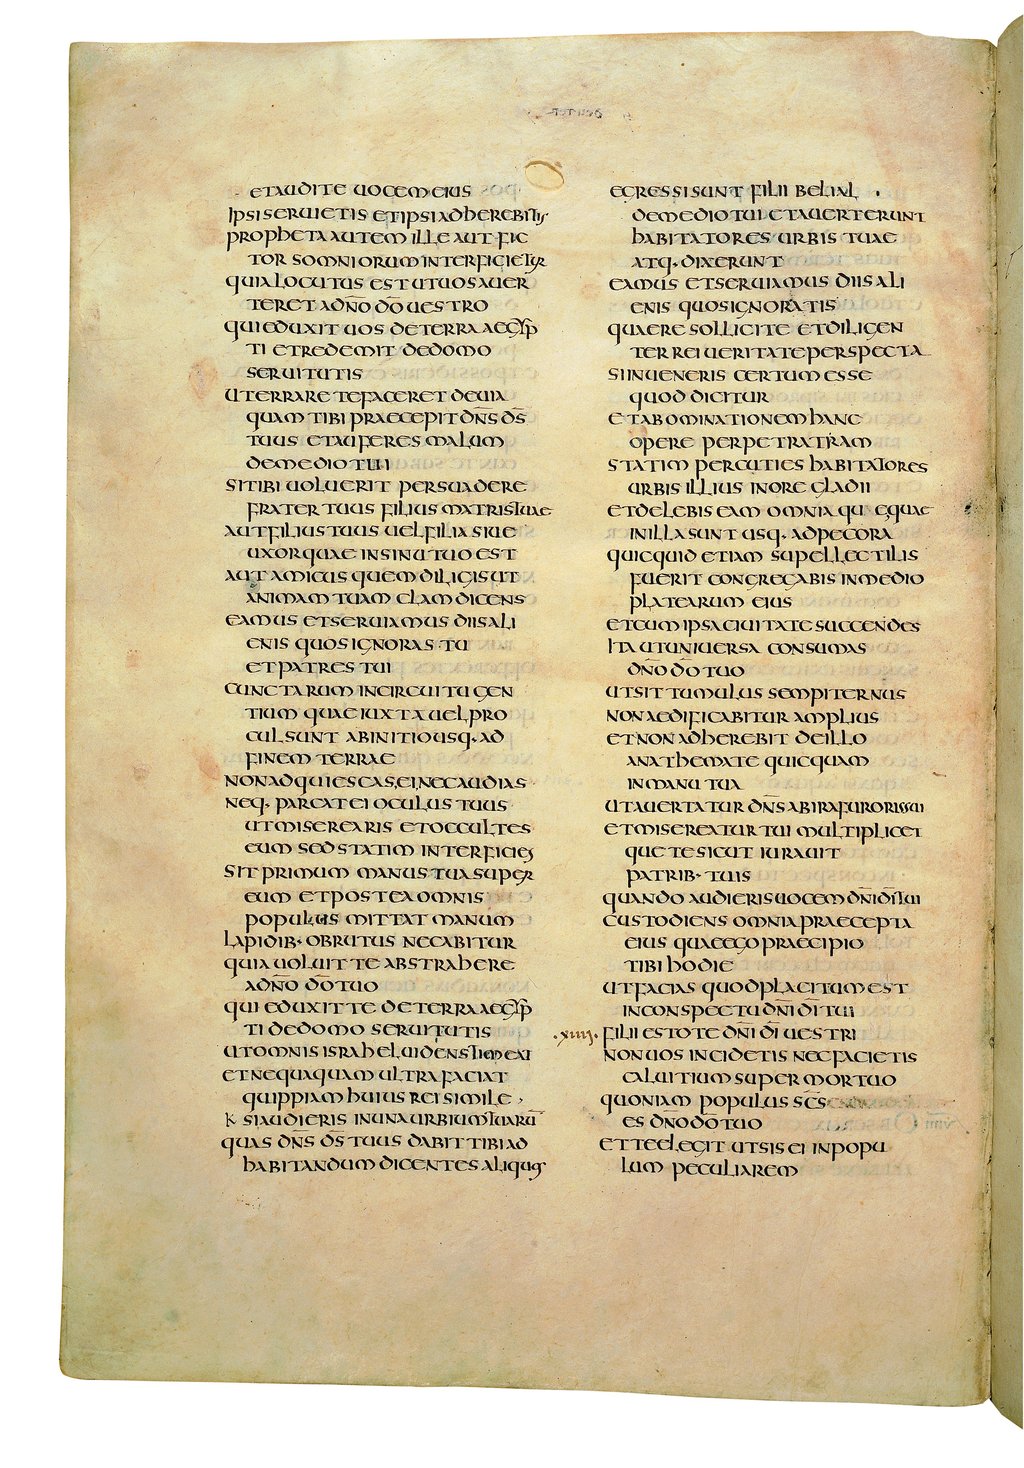 ET AUDITE UOCEM EIUS
IPSI SERUIETIS ET IPSI ADHEREBITIS
PROPHETA AUTEM ILLE AUT FIC
TOR SOMNIORUM INTERFICIETUR
QUIA LOCUTUS EST UT UOS AUER
TERET A DÑO DŌ UESTRO
QUI EDUXIT UOS DE TERRA AEGYP
TI ET REDEMIT DE DOMO
SERUITUTIS
UT ERRARE TE FACERET DE UIA
QUAM TIBI PRAECEPIT DÑS DS̄
TUUS ET AUFERES MALUM
DE MEDIO TUI
SI TIBI UOLUERIT PERSUADERE
FRATER TUUS FILIUS MATRIS TUAE
AUT FILIUS TUUS UEL FILIA SIUE
UXOR QUAE IN SINU TUO EST
AUT AMICUS QUEM DILIGIS UT
ANIMAM TUAM CLAM DICENS
EAMUS ET SERUIAMUS DIIS ALI
ENIS QUOS IGNORAS TU
ET PATRES TUI
CUNCTARUM IN CIRCUITU GEN
TIUM QUAE IUXTA UEL PRO
CUL SUNT AB INITIO USQ· AD
FINEM TERRAE
NON ADQUIESCAS EI NEC AUDIAS
NEQ· PARCAT EI OCULUS TUUS
UT MISEREARIS ET OCCULTES
EUM SED STATIM INTERFICIES
SIT PRIMUM MANUS TUA SUPER
EUM ET POSTEA OMNIS
POPULUS MITTAT MANUM
LAPIDIB· OBRUTUS NECABITUR
QUIA UOLUIT TE ABSTRAHERE
A DÑO DŌ TUO
QUI EDUXIT TE DE TERRA AEGYP
TI DE DOMO SERUITUTIS
UT OMNIS ISRAHEL UIDENS TIMEAT
ET NEQUAQUAM ULTRA FACIAT
QUIPPIAM HUIUS REI SIMILE
K SI AUDIERIS IN UNA URBIUM TUARŪ
QUAS DÑS DS̄ TUUS DABIT TIBI AD
HABITANDUM DICENTES ALIQUOS
EGRESSI SUNT FILII BELIAL
DE MEDIO TUI ET AUERTERUNT
HABITATORES URBIS TUAE
ATQ· DIXERUNT
EAMUS ET SERUIAMUS DIIS ALI
ENIS QUOS IGNORATIS
QUAERE SOLLICITE ET DILIGEN
TER REI UERITATE PERSPECTA
SI INUENERIS CERTUM ESSE
QUOD DICITUR
ET ABOMINATIONEM HANC
OPERE PERPETRATAM
STATIM PERCUTIES HABITATORES
URBIS ILLIUS IN ORE GLADII
ET DELEBIS EAM OMNIAQUE QUAE
IN ILLA SUNT USQ· AD PECORA
QUICQUID ETIAM SUPELLECTILIS
FUERIT CONGREGABIS IN MEDIO
PLATEARUM EIUS
ET CUM IPSA CIUITATE SUCCENDES
ITA UT UNIUERSA CONSUMAS
DÑO DŌ TUO
UT SIT TUMULUS SEMPITERNUS
NON AEDIFICABITUR AMPLIUS
ET NON ADHEREBIT DE ILLO
ANATHEMATE QUICQUAM
IN MANU TUA
UT AUERTATUR DÑS AB IRA FURORIS SUI
ET MISEREATUR TUI MULTIPLICET
QUE TE SICUT IURAUIT
PATRIB· TUIS
QUANDO AUDIERIS UOCEM DÑI DĪ TUI
CUSTODIENS OMNIA PRAECEPTA
EIUS QUAE EGO PRAECIPIO
TIBI HODIE
UT FACIAS QUOD PLACITUM EST
IN CONSPECTU DÑI DĪ TUI
·XIIII· FILII ESTOTE DÑI DĪ UESTRI
NON UOS INCIDETIS NEC FACIETIS
CALUITIUM SUPER MORTUO
QUONIAM POPULUS SC̄S
ES DÑO DŌ TUO
ET TE ELEGIT UT SIS EI IN POPU
LUM PECULIAREM